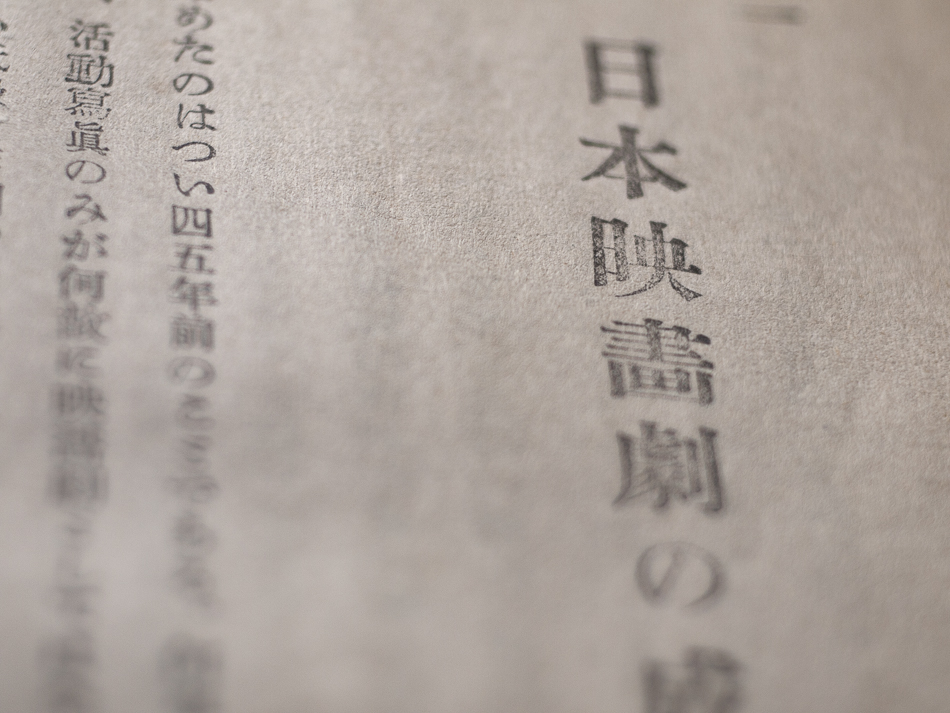 日本映畫劇の
めたのはつい四五年前のことである。
活動寫眞のみが何故に映畫劇として